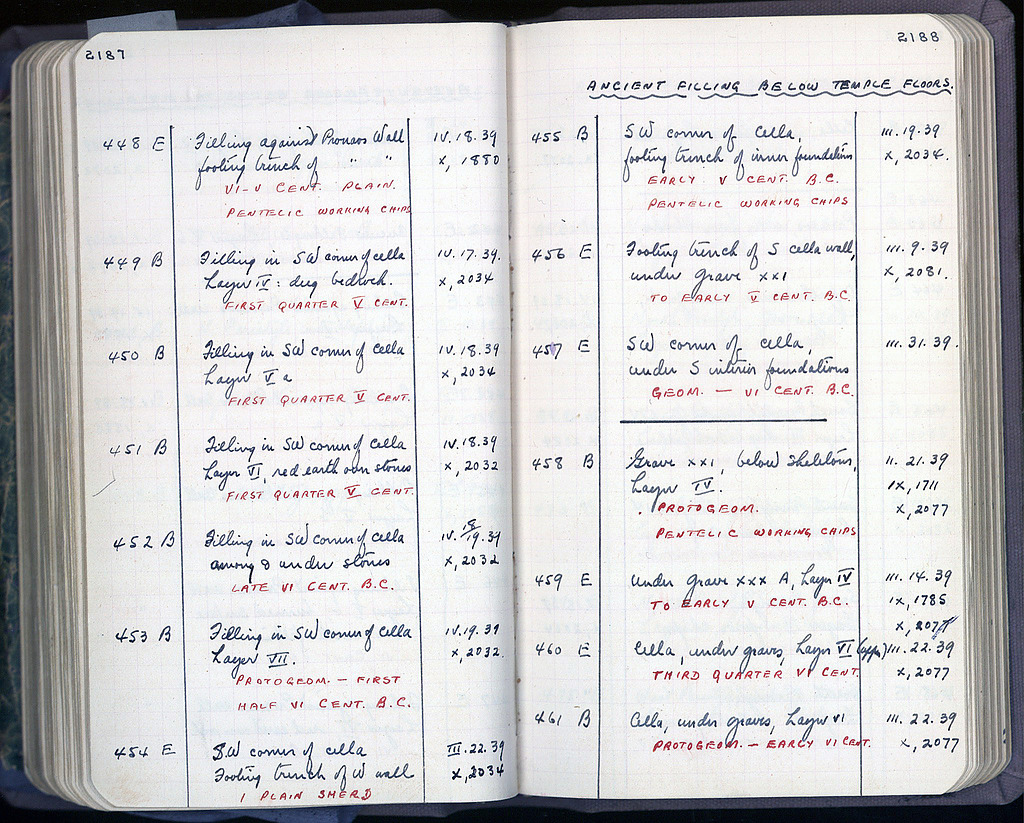 2187
448 E Filling against Pronaos Wall IV.18.39
footing trench of " " X, 1880
VI-V CENT. PLAIN.
PENTELIC WORKING CHIPS
449 B Filling in SW corner of cella IV.17.39.
Layer IV: dug bedrock. X, 2034
FIRST QUARTER V CENT.
450 B Filling in SW corner of cella IV.18.39
Layer V a X, 2034
FIRST QUARTER V CENT.
451 B Filling in SW corner of cella IV.18.39
Layer VI, red earth over stones X, 2032
FIRST QUARTER V CENT.
452 B Filling in SW corner of cella IV.18/19.39
among & under stones X, 2032
LATE VI CENT. B.C.
453 B Filling in SW corner of cella IV.19.39
Layer VII. X, 2032.
PROTOGEOM. — FIRST
HALF VI CENT. B.C.
454 E SW corner of cella III.22.39
Footing trench of W wall X, 2034
1 PLAIN SHERD
2188
ANCIENT FILLING BELOW TEMPLE FLOORS.
455 B SW corner of cella, III.19.39
footing trench, of inner foundation X, 2034.
EARLY V CENT. B.C.
PENTELIC WORKING CHIPS
456 E Footing trench of S cella wall, III.9.39
under grave XXI X, 2081.
TO EARLY V CENT. B.C.
457 E SW corner of cella, III.31.39.
under S interior foundations
GEOM. — VI CENT. B.C.
458 B Grave XXI, below skeletons, II.21.39
Layer IV. IX, 1711
PROTOGEOM. X, 2077
PENTELIC WORKING CHIPS
459 E Under grave XXX A, Layer IV III.14.39
TO EARLY V CENT. B.C. IX, 1785
X, 2077
460 E Cella, under graves, Layer VI (upper) III.22.39
THIRD QUARTER VI CENT. X, 2077
461 B Cella, under graves, Layer VI III.22.39
PROTOGEOM. — EARLY VI CENT. X, 2077